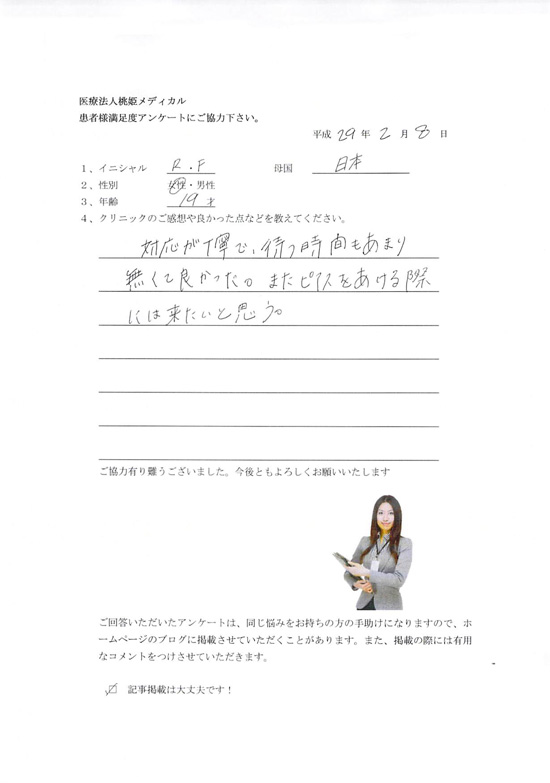 医療法人桃姫メディカル
患者様満足度アンケートにご協力下さい。
平成 29 年 2 月 8 日
1、イニシャル R.F 母国 日本
2、性別 女性・男性
3、年齢 19 才
4、クリニックのご感想や良かった点などを教えてください。
対応が丁寧で、待つ時間もあまり
無くて良かった。またピアスをあける際
には来たいと思う。
ご協力有り難うございました。今後ともよろしくお願いいたします
ご回答いただいたアンケートは、同じ悩みをお持ちの方の手助けになりますので、ホ
ームページのブログに掲載させていただくことがあります。また、掲載の際には有用
なコメントをつけさせていただきます。
☑ 記事掲載は大丈夫です！